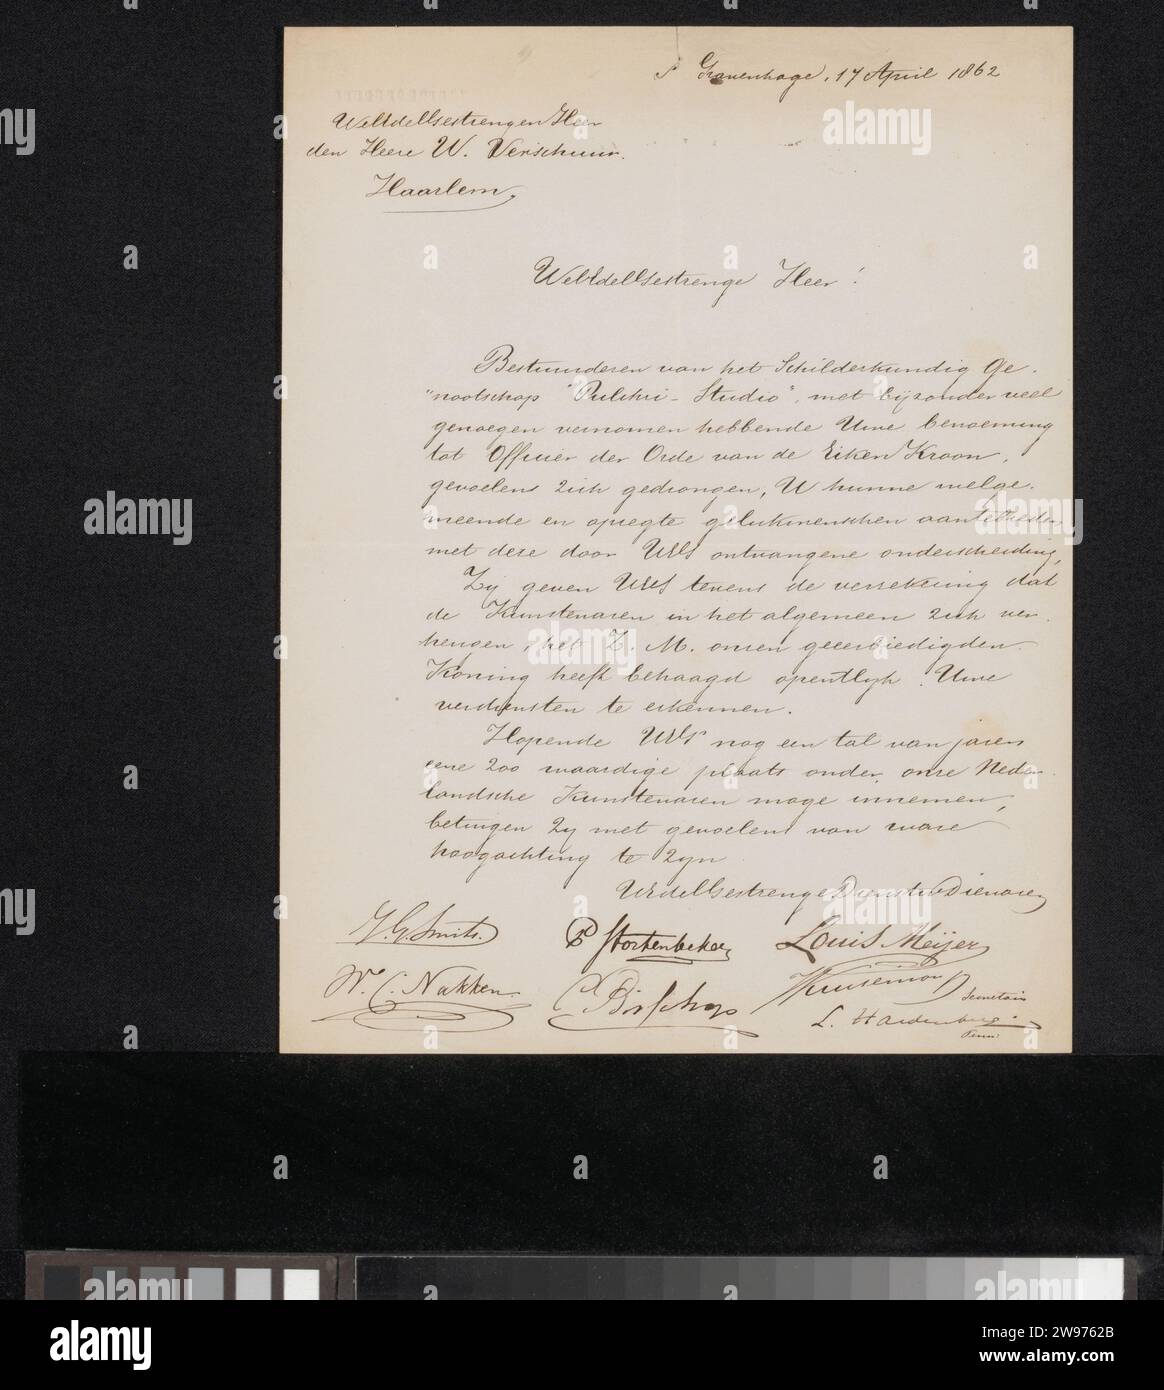 's Gravenhage, 17 April 1862
WelEdelGestrengen Heer
den Heere W. Verschuur.
Haarlem,
WelEdelGestrenge Heer!
Bestuurderen van het Schilderkundig Ge-
"nootschap "Pulchri-Studio", met bijzonder veel
genoegen vernomen hebbende Uwe benoeming
tot Officier der Orde van de Eiken Kroon,
gevoelens zich gedrongen, U hunne welge-
meende en opregte gelukwenschen aantebieden
met deze door UEG ontvangene onderscheiding,
Zij geven UEG tevens de verzekering dat
de Kunstenaren in het algemeen zich ver-
heugen, het Z. M. onzen geeerbiedigden
Koning heeft behaagd openttlijk Uwe
verdiensten te erkennen.
Hopende UEG nog een tal van jaren
eene zoo waardige plaats onder onze Neder-
landsche Kunstenaren moge innemen,
betuigen zij met gevoelens van ware
hoogachting te zijn
UEdelGestrenge Dienstw Dienaren
J. G. Smits.
P Stortenbeker
Louis Meijer
W. C. Nakken.
C Bisschop
Secretaris
L. Hardenberg.
Penn:
alamy
a
alamy
Image ID: 2W9762B
www.alamy.com